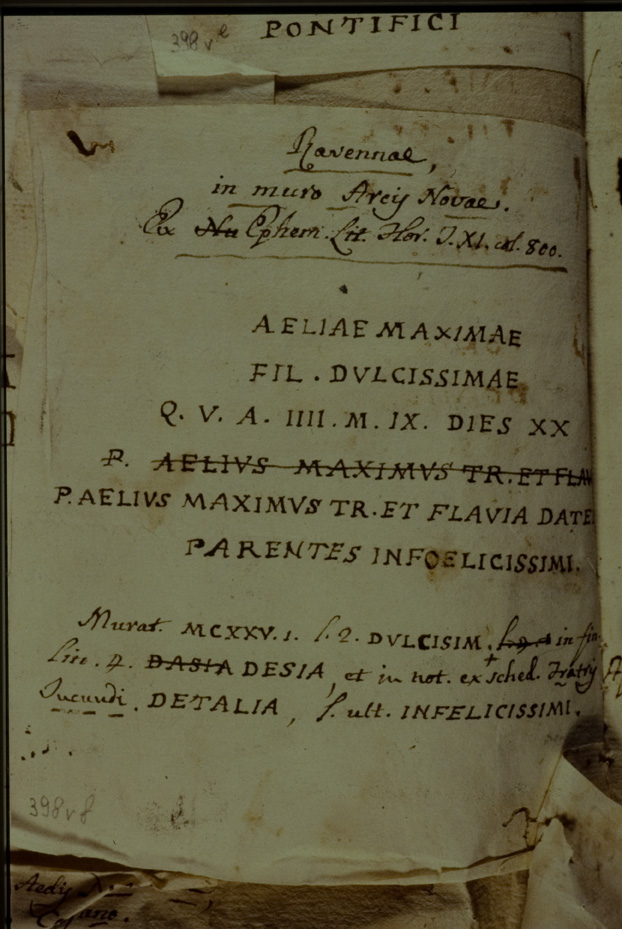 398 v e
PONTIFICI
Ravennae,
in muro Arcis Novae.
Ex Nu Ephem. Lit. Flor. T. XI. col. 800.
AELIAE MAXIMAE
FIL . DVLCISSIMAE
Q. V. A. IIII. M. IX. DIES XX
P. AELIVS MAXIMVS TR. ET FLAV
P. AELIVS MAXIMVS TR. ET FLAVIA DATE
PARENTES INFOELICISSIMI.
Murat. MCXXV. 1. l. 2. DVLCISIM. in fin
Lin. 4. DASIA DESIA, et in not. ex sched. Fratris
Jucundi. DETALIA, l. ult. INFELICISSIMI.
398 v f
Aedis